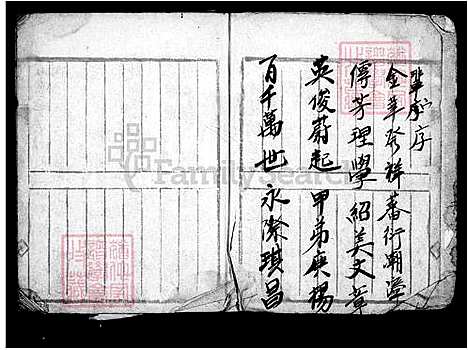 輩序
金華發祥蕃衍潮學
傳芳理學紹美文章
英俊蔚起甲弟庚揚
百千萬世永際琪昌
FamilySearch